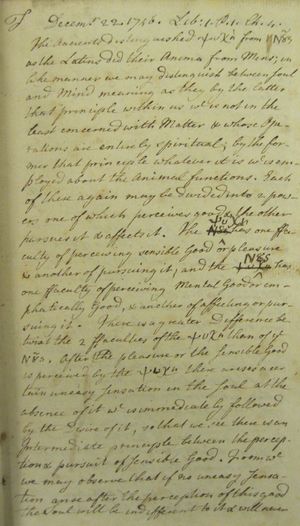 Decemr. 22. 1756. Lib: 1. P. 1. Ch. 4.
The Ancients distinguished ψυχη from Νους
as the Latins did their Anima from Mens; in
like manner we may distinguish between Soul
and Mind meaning as they by the latter
that principle within us wc. is not in the
least concerned with Matter & whose Ope-
rations are entirely spiritual; by the for-
mer that principle whatever it is wc. is em-
ployed about the Animal functions. Each
of these again may be divided into 2 pow-
ers one of which perceives good & the other
pursues it & affects it. The ψυχη has one ffa-
culty of perceiving sensible Good or pleasure
& another of pursuing it; and the Νους has
one ffaculty of perceiving Mental Good or em-
phatically Good, & another of affecting or pur-
suing it. There is a greater Difference be
twixt the 2 ffaculties of the ψυχη than of ye
Νους. After the pleasure or the sensible Good
is perceived by the ψυχη there arises a cer
tain uneasy sensation in the Soul at the
absence of it wc. is immediately followed
by the desire of it, so that we see there is an
Intermediate principle between the percep-
tion & pursuit of sensible Good. From wc.
we may observe that if no uneasy sensa-
tion arise after the perception of this good
the Soul will be indifferent to it & will never